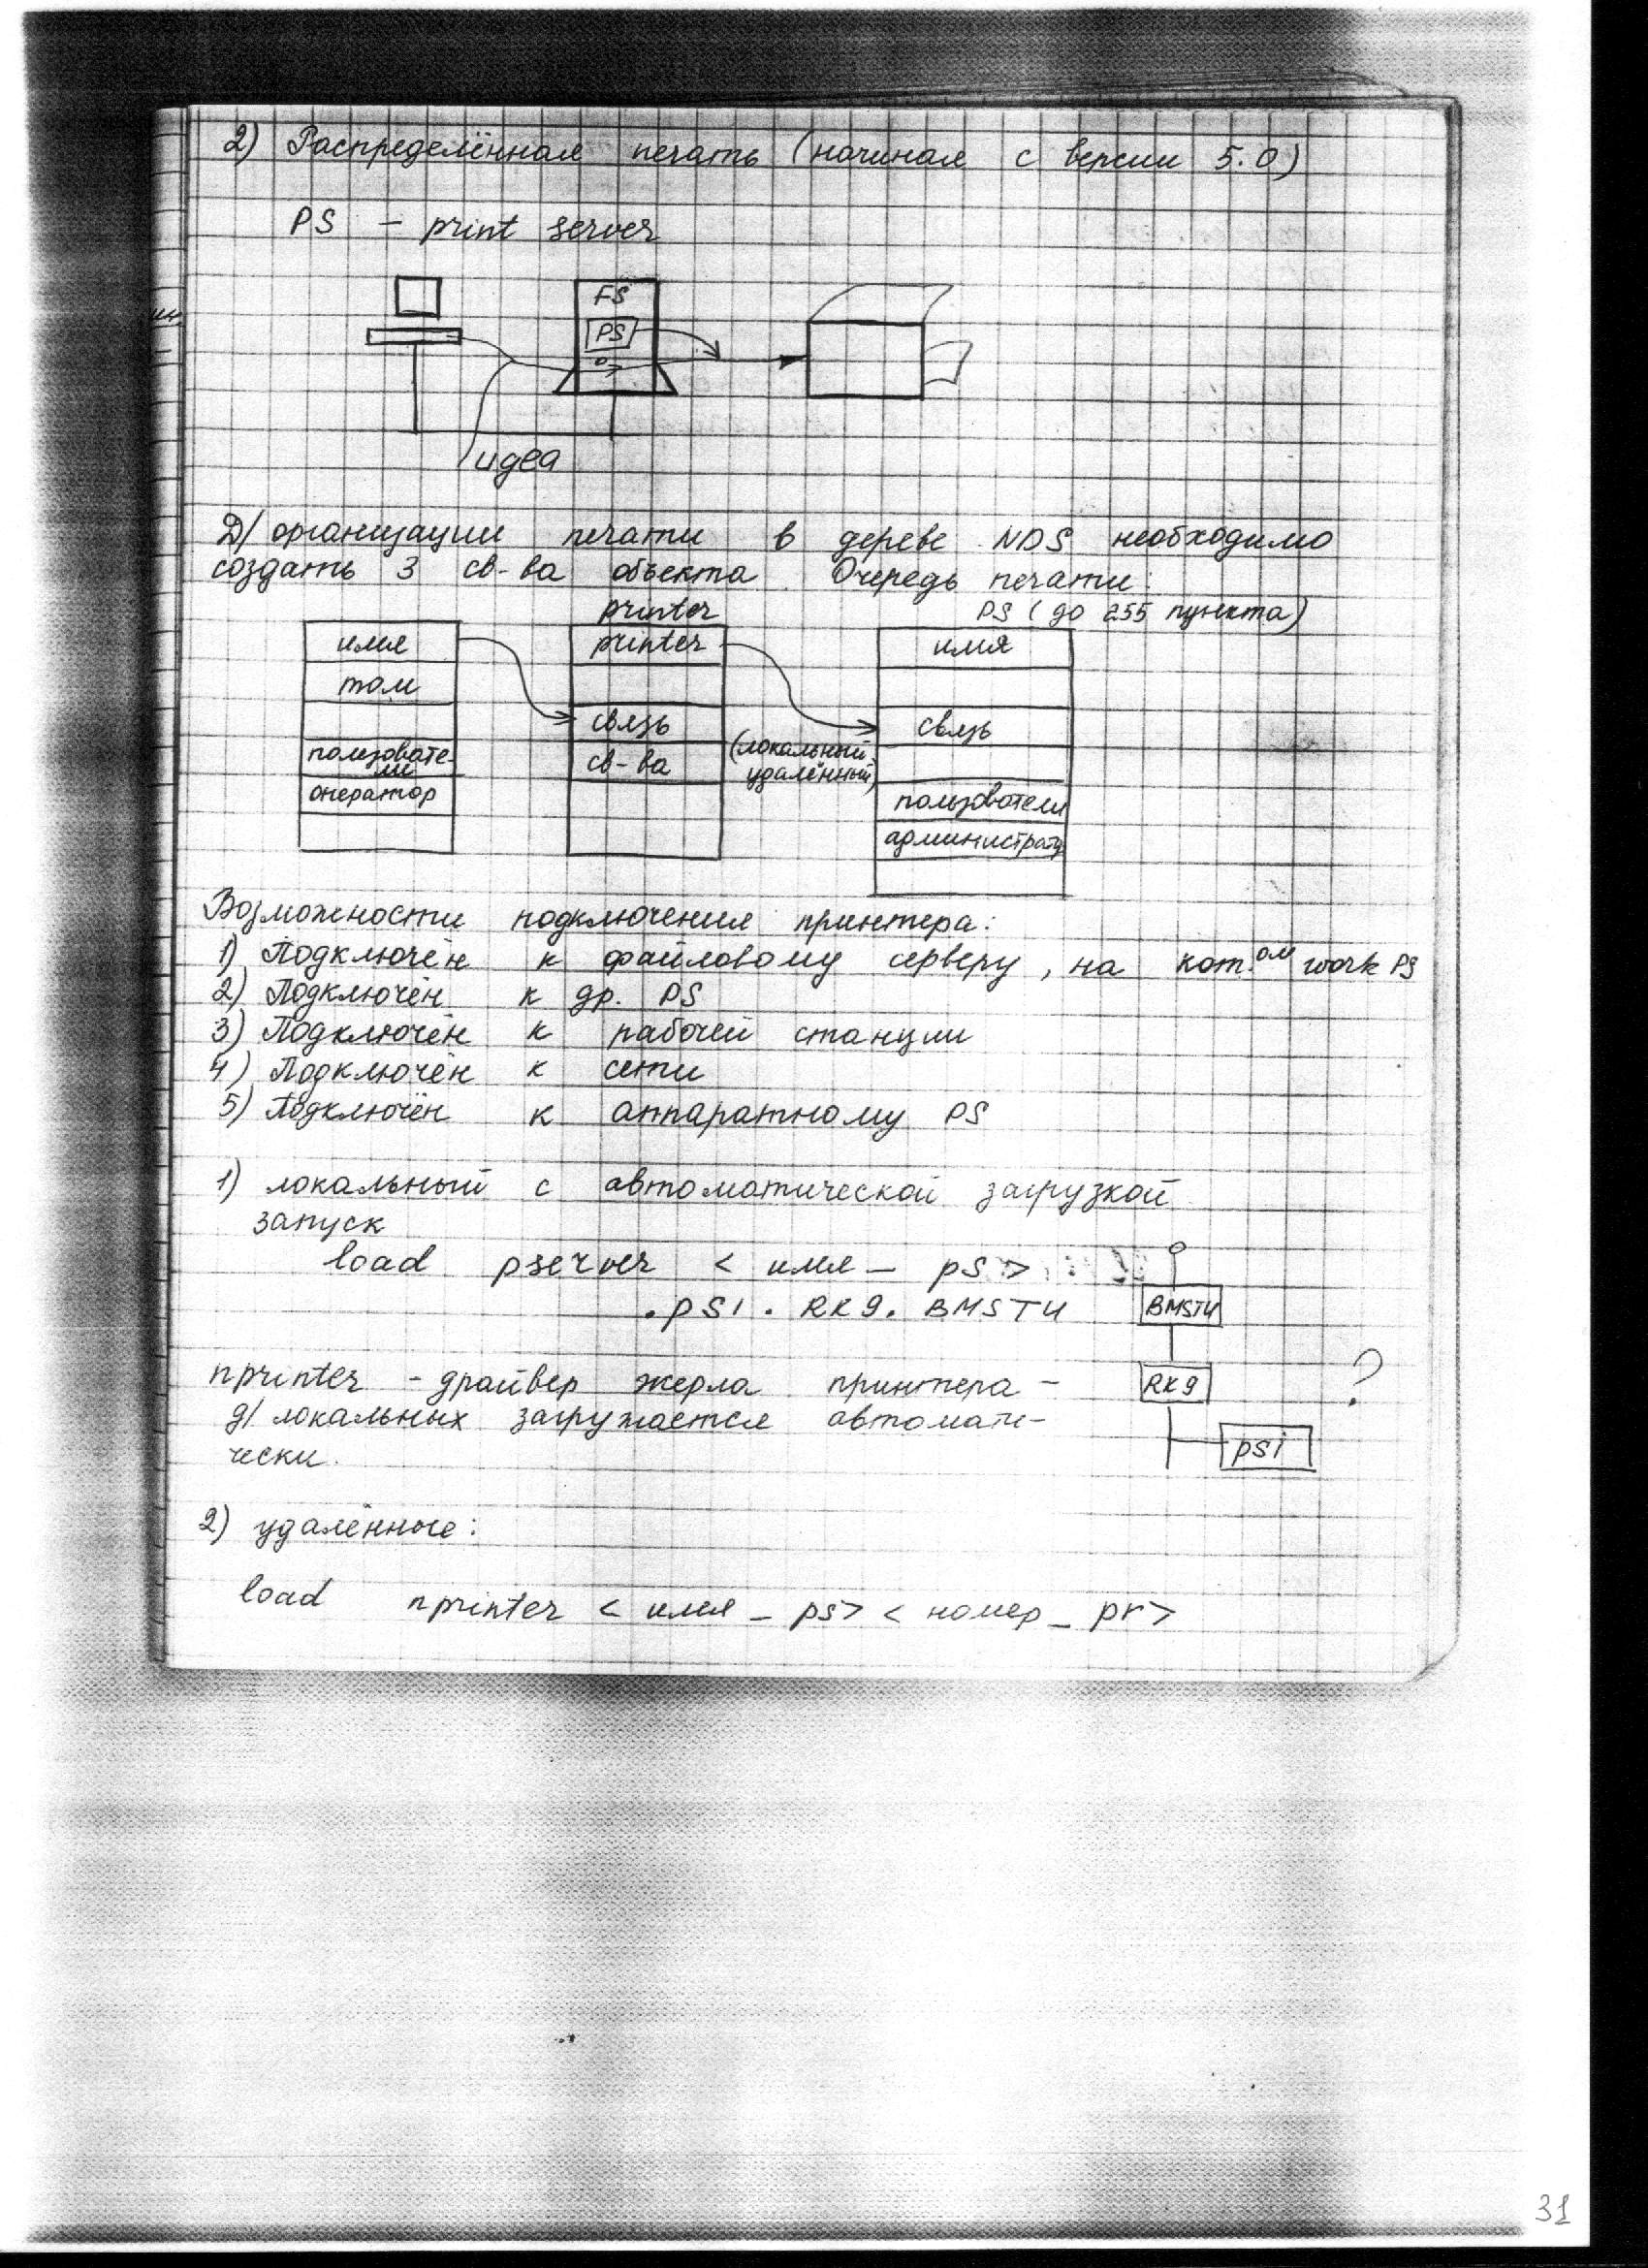 2) Распределённая печать (начиная с версии 5.0)
PS – print server
FS
PS
идеа
Д/ организации печати в дереве NDS необходимо
создать 3 св-ва объекта. Очередь печати:
printer PS (до 255 пункта)
имя printer имя
том
связь связь
пользовате- св-ва (локальный,
ли удалённый)
оператор пользователи
администрат
Возможности подключения принтера:
1) Подключён к файловому серверу, на кот.ом work PS
2) Подключён к др. PS
3) Подключён к рабочей станции
4) Подключён к сети
5) Подключён к аппаратному PS
1) локальный с автоматической загрузкой
запуск
load pserver < имя _ ps >
.ps1. RK9. BMSTU BMSTU
nprinter - драйвер жерла принтера - RK9 ?
д/ локальных загружается автомати-
чески. ps1
2) удалённые:
load nprinter < имя _ ps> < номер _ pr>
31